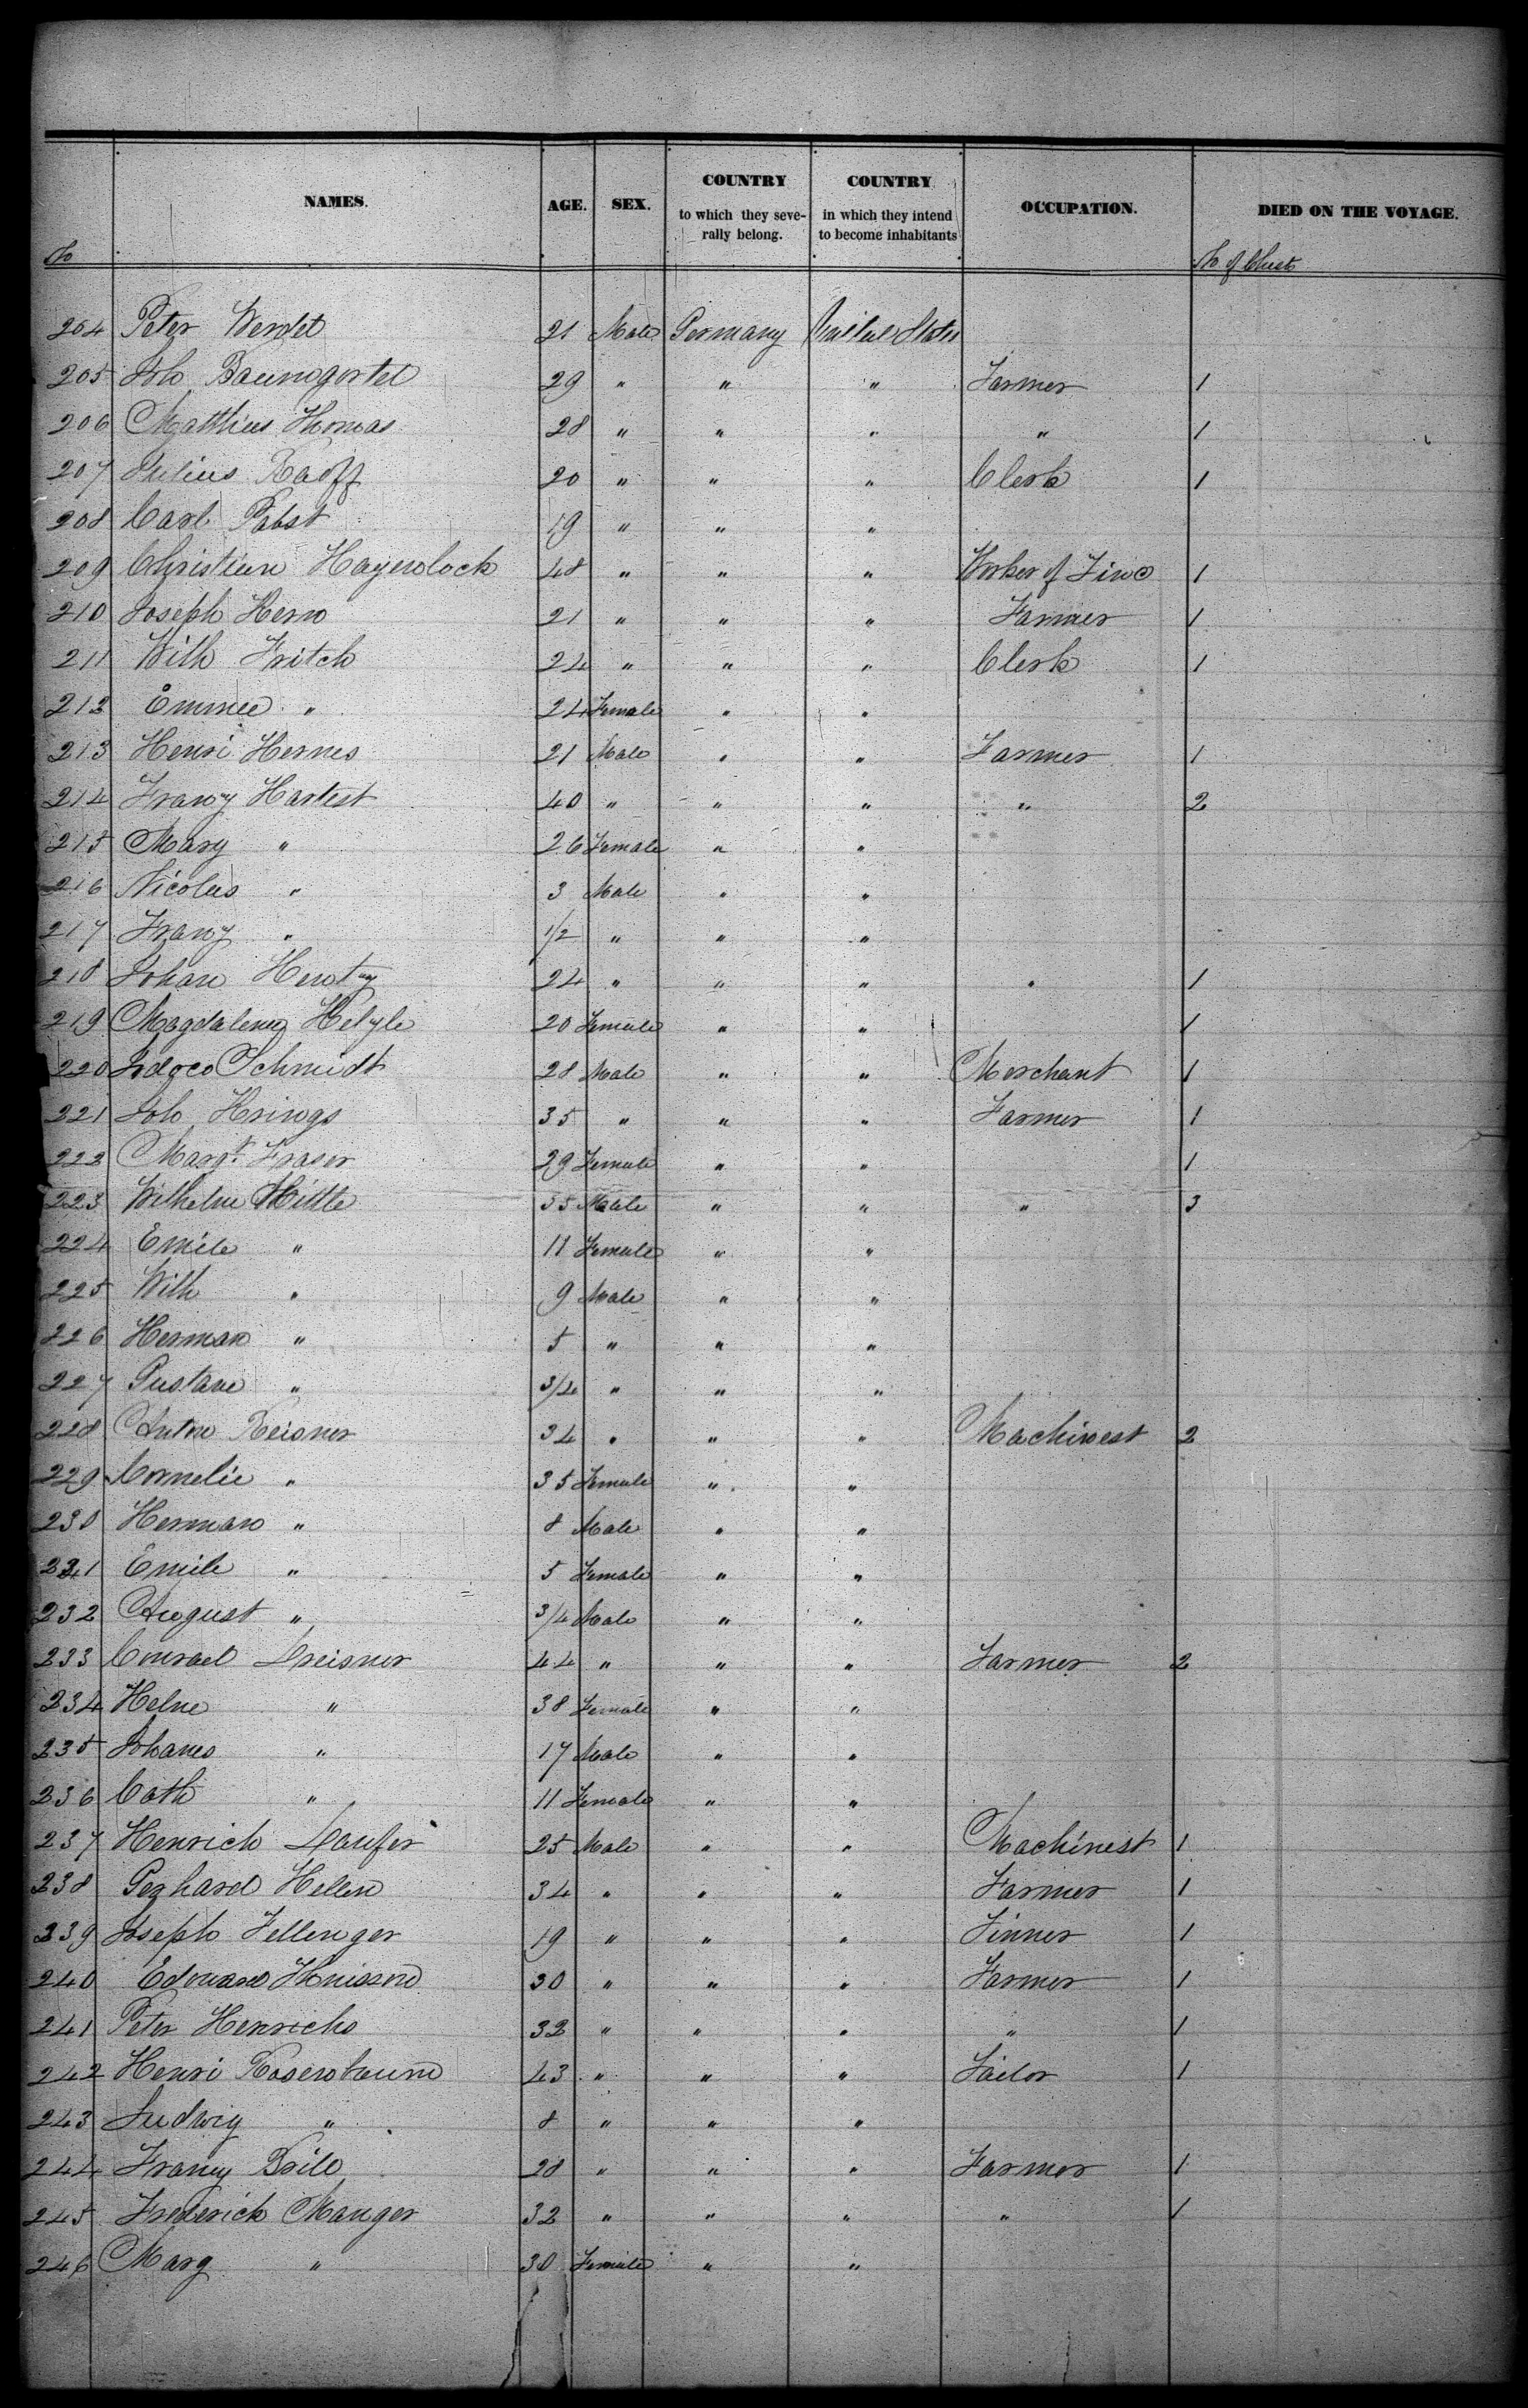 NAMES. AGE. SEX. COUNTRY to which they severally belong. COUNTRY in which they intend to become inhabitants OCCUPATION. DIED ON THE VOYAGE.
No No of Chests
204 Peter Wendet 21 Male Germany United States
205 Joh Baumgartel 29 " " " Farmer 1
206 Matthius Thomas 28 " " " " 1
207 Julius Raoff 20 " " " Clerk 1
208 Carl Pabst 19 " " "
209 Christian Hagenlock 48 " " " Worker of Zinc 1
210 Joseph Hern 21 " " " Farmer 1
211 Wilh Fritch 24 " " " Clerk 1
212 Emmee " 24 Female " "
213 Henri Hermes 21 Male " " Farmer 1
214 Franz Hartest 40 " " " " 2
215 Mary " 26 Female " "
216 Nicolus " 3 Male " "
217 Franz " 1/2 " " "
218 Johan 24 " " " " 1
219 Magdalena 20 Female " " 1
220 Schmidt 28 Male " " Merchant 1
221 Joh Hrings 35 " " " Farmer 1
222 Margt Fraser 29 Female " " 1
223 Wilhelm Hittle 35 Male " " " 3
224 Emile " 11 Female " "
225 Wilh " 9 Male " "
226 Herman " 5 " " "
227 Gustave " 3/4 " " "
228 Anton Reisner 34 " " " Machinest 2
229 Cornelie " 35 Female " "
230 Herman " 8 Male " "
231 Emile " 5 Female " "
232 August " 3/4 Male " "
233 Conrad Dreisner 44 " " " Farmer 2
234 Helne " 38 Female " "
235 Johanes " 17 Male " "
236 Cath " 11 Female " "
237 Henrich Laufer 25 Male " " Machinest 1
238 Gerhard Hellen 34 " " " Farmer 1
239 Joseph Fellenger 19 " " " Tinner 1
240 Edouard 30 " " " Farmer 1
241 Peter Henrichs 32 " " " " 1
242 Henri Rosenbaum 43 " " " Tailor 1
243 Ludwig " 8 " " "
244 Franz Brill 28 " " " Farmer 1
245 Frederick Manger 32 " " " " 1
246 Marg " 30 Female " "